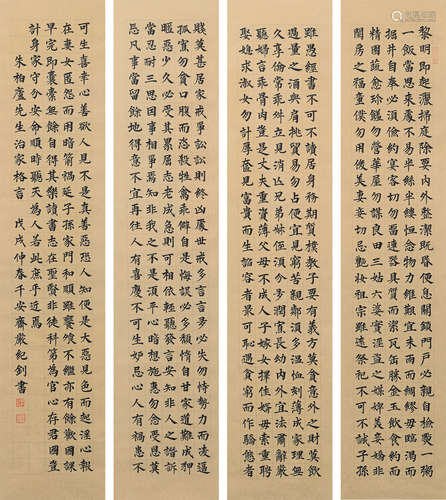 黎明即起灑掃庭除要內外整潔既昏便息關鎖門戶必親自檢點一粥
一飯當思來處不易半絲半縷恒念物力維艱宜未雨而綢繆毋臨渴而
掘井自奉必須儉約宴客切勿留連器具質而潔瓦缶勝金玉飲食約而
精園蔬愈珍饈勿營華屋勿謀良田三姑六婆實淫盜之媒婢美妾嬌非
閨房之福童僕勿用俊美妻妾切忌艷妝祖宗雖遠祭祀不可不誠子孫
雖愚經書不可不讀居身務期質樸教子要有義方莫貪意外之財莫飲
過量之酒與肩挑貿易勿占便宜見窮苦親鄰須多溫恤刻薄成家理無
久享倫常乖舛立見消亡兄弟叔侄須分多潤寡長幼內外宜法肅辭嚴
聽婦言乖骨肉豈是丈夫重資薄父母不成人子嫁女擇佳婿毋索重聘
娶媳求淑女勿計厚奩見富貴而生諂容者最可恥遇貧窮而作驕態者
賤莫甚居家戒爭訟訟則終凶處世戒多言言多必失勿恃勢力而凌逼
孤寡勿貪口腹而恣殺牲禽乖僻自是悔誤必多頹惰自甘家道難成狎
暱惡少久必受其累屈志老成急則可相依輕聽發言安知非人之譖訴
當忍耐三思因事相爭焉知非我之不是須平心暗想施惠勿念受恩莫
忘凡事當留餘地得意不宜再往人有喜慶不可生妒忌心人有禍患不
可生喜幸心善欲人見不是真善惡恐人知便是大惡見色而起淫心報
在妻女匿怨而用暗箭禍延子孫家門和順雖饔飧不繼亦有餘歡國課
早完即囊橐無餘自得其樂讀書志在聖賢非徒科第為官心存君國豈
計身家守分安命順時聽天為人若此庶乎近焉
朱柏廬先生治家格言 戊戌仲春千安齋嚴紀釗書